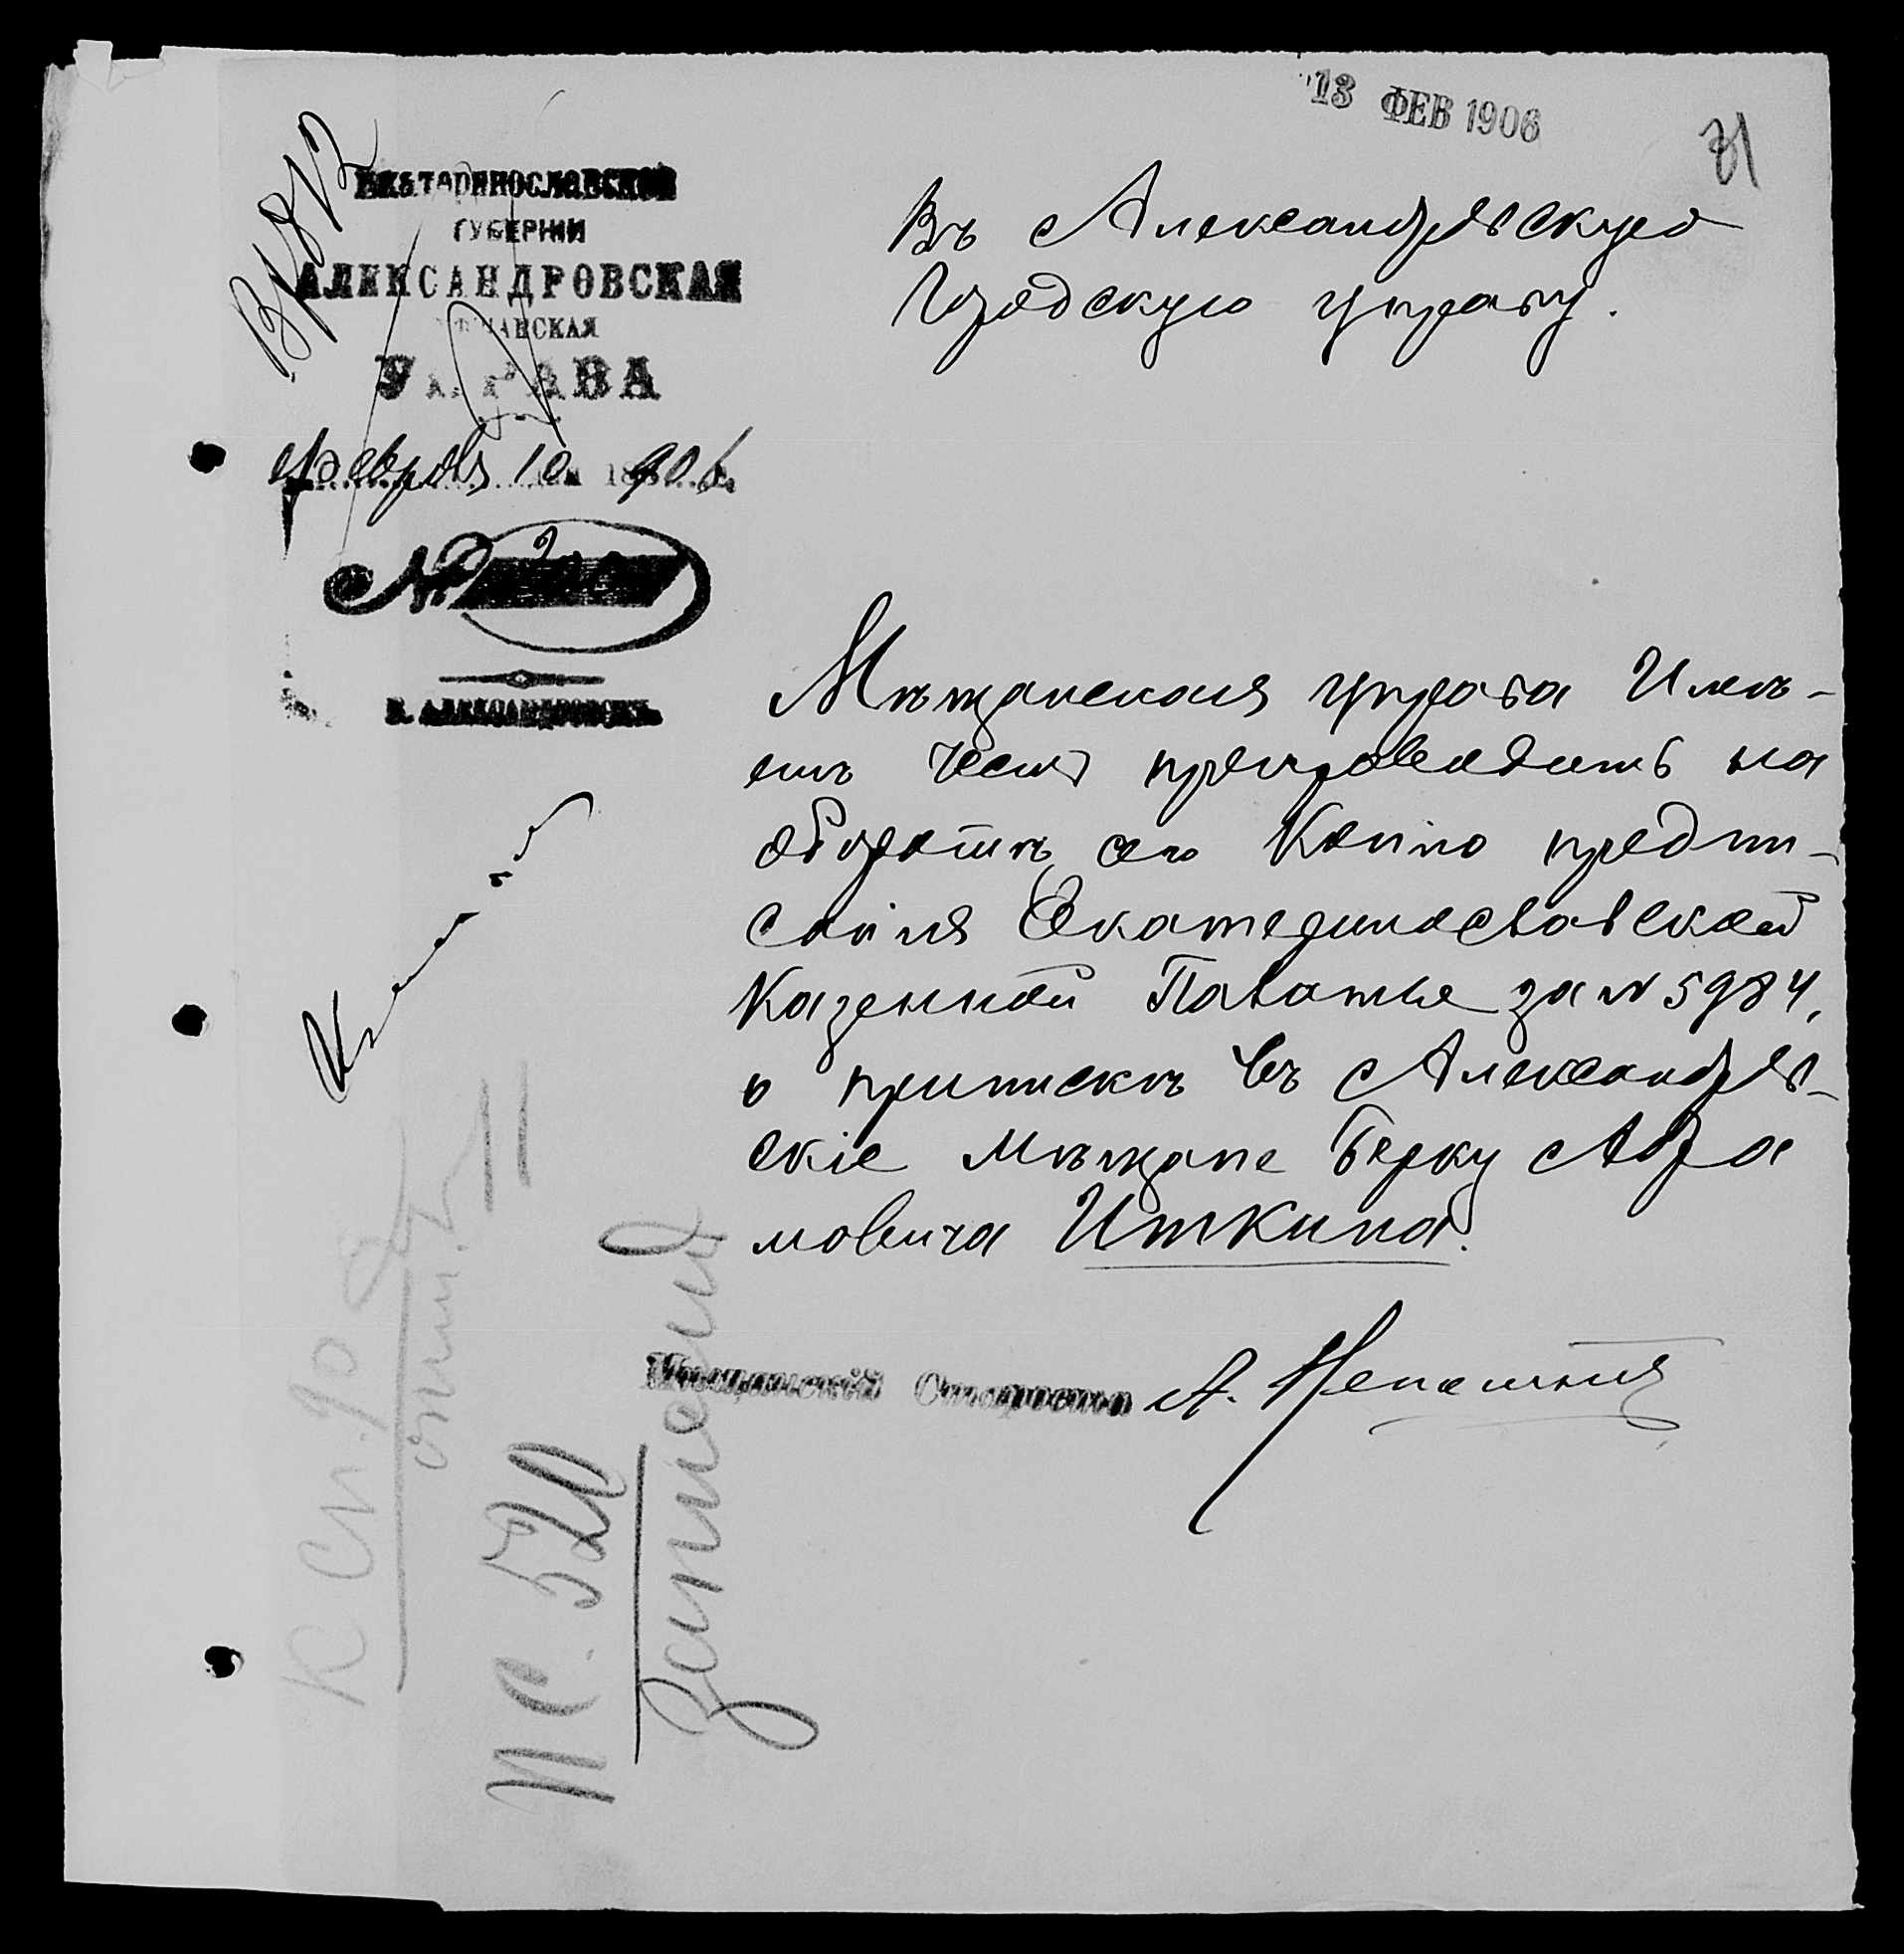 13 ФЕВ 1906
31
Вх 812
ЕКАТЕРИНОСЛАВСКОЙ
ГУБЕРНІИ
АЛЕКСАНДРОВСКАЯ
МѢЩАНСКАЯ
УПРАВА
Февраля 10 дня 1906 г.
№
Г. АЛЕКСАНДРОВСКЪ.
Въ Александрвскую
Городскую управу.
Мѣщанская управа Имѣ-
етъ честь препроводить на
оборотѣ сего Копію предпи-
санія Екатеринославской
Казенной Палаты за № 5984,
о припискѣ въ Александров-
скіе мѣщане Берку Абра
мовича Иткина.
Мѣщанскій Староста А.
К сп. 1908
П С. 520